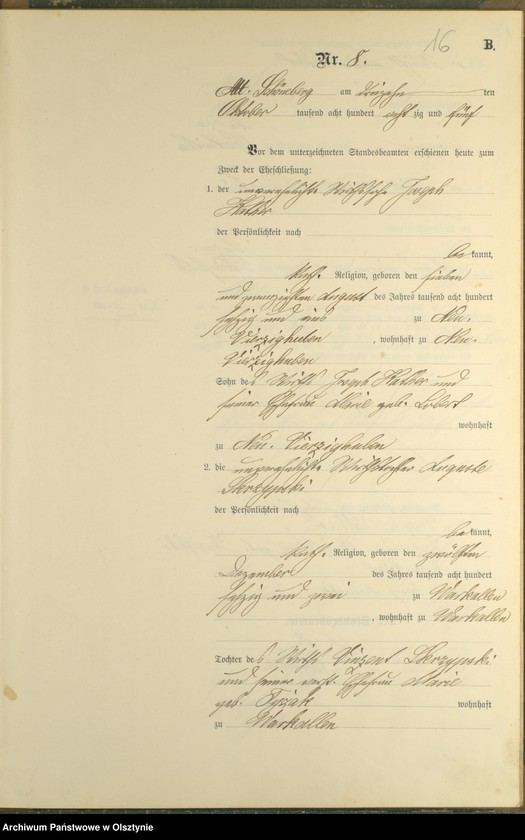 16
B.
Nr. 8.
Alt-Schöneberg am dreizehn ten
Oktober tausend acht hundert acht zig und fünf
Vor dem unterzeichneten Standesbeamten erschienen heute zum
Zweck der Eheschließung:
1. der unverehelichte Wirthssohn Joseph
Hather
der Persönlichkeit nach
be kannt,
kath. Religion, geboren den sieben
und zwanzigsten August des Jahres tausend acht hundert
sechzig und eins zu Neu-
Vierzighuben , wohnhaft zu Neu-
Vierzighuben
Sohn des Wirths Joseph Hather und
seiner Ehefrau Marie geb. Lobert
wohnhaft
zu Neu-Vierzighuben
2. die unverehelichte Wirthstochter Auguste
Skrzypski
der Persönlichkeit nach
be kannt,
kath. Religion, geboren den zwölften
Dezember des Jahres tausend acht hundert
sechzig und zwei zu Warkallen
, wohnhaft zu Warkallen
Tochter des Wirths Vinzent Skrzypski
und seiner verst. Ehefrau Marie
geb. wohnhaft
zu Warkallen
Archiwum Państwowe w Olsztynie